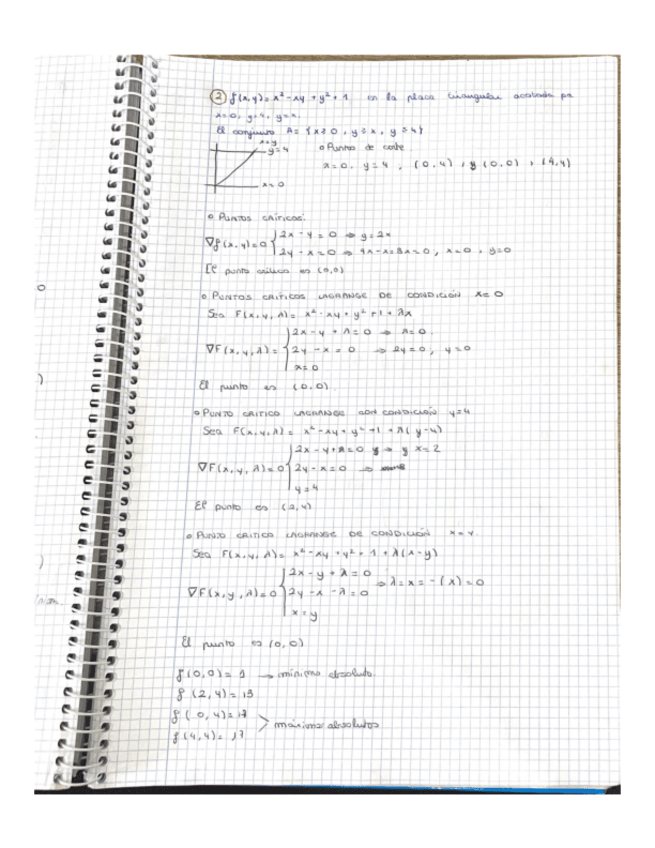 ② f(x,y) = x² - xy + y² + 1 en la placa triangular acotada por
x=0, y=4, y=x.
El conjunto A = {x≥0, y≤x, y≤4}
x=y
y=4
x=0
o Puntos de corte
x=0, y=4, (0,4), y (0,0), (4,4)
o PUNTOS CRÍTICOS:
∇f(x,y)=0 { 2x - y = 0 ⇒ y=2x
2y - x = 0 ⇒ 4x-x=3x=0, x=0, y=0
El punto crítico es (0,0)
o PUNTOS CRITICOS LAGRANGE DE CONDICIÓN x=0
Sea F(x,y,λ) = x² - xy + y² + 1 + λx
∇F(x,y,λ) = { 2x - y + λ = 0 ⇒ λ=0.
2y - x = 0 ⇒ 2y=0, y=0
x=0
El punto es (0,0).
o PUNTO CRITICO LAGRANGE CON CONDICIÓN y=4
Sea F(x,y,λ) = x² - xy + y² + 1 + λ(y-4)
∇F(x,y,λ)=0 { 2x - y + λ = 0 ⇒ y x=2
2y - x = 0 ⇒
y=4
El punto es (2,4)
o PUNTO CRITICO LAGRANGE DE CONDICIÓN x=y.
Sea F(x,y,λ) = x² - xy + y² + 1 + λ(x-y)
∇F(x,y,λ)=0 { 2x - y + λ = 0
2y - x - λ = 0 ⇒ λ=x=-(x)=0
x=y
El punto es (0,0)
f(0,0) = 1 → mínimo absoluto.
f(2,4) = 13
f(0,4) = 17
f(4,4) = 17
> máximos absolutos